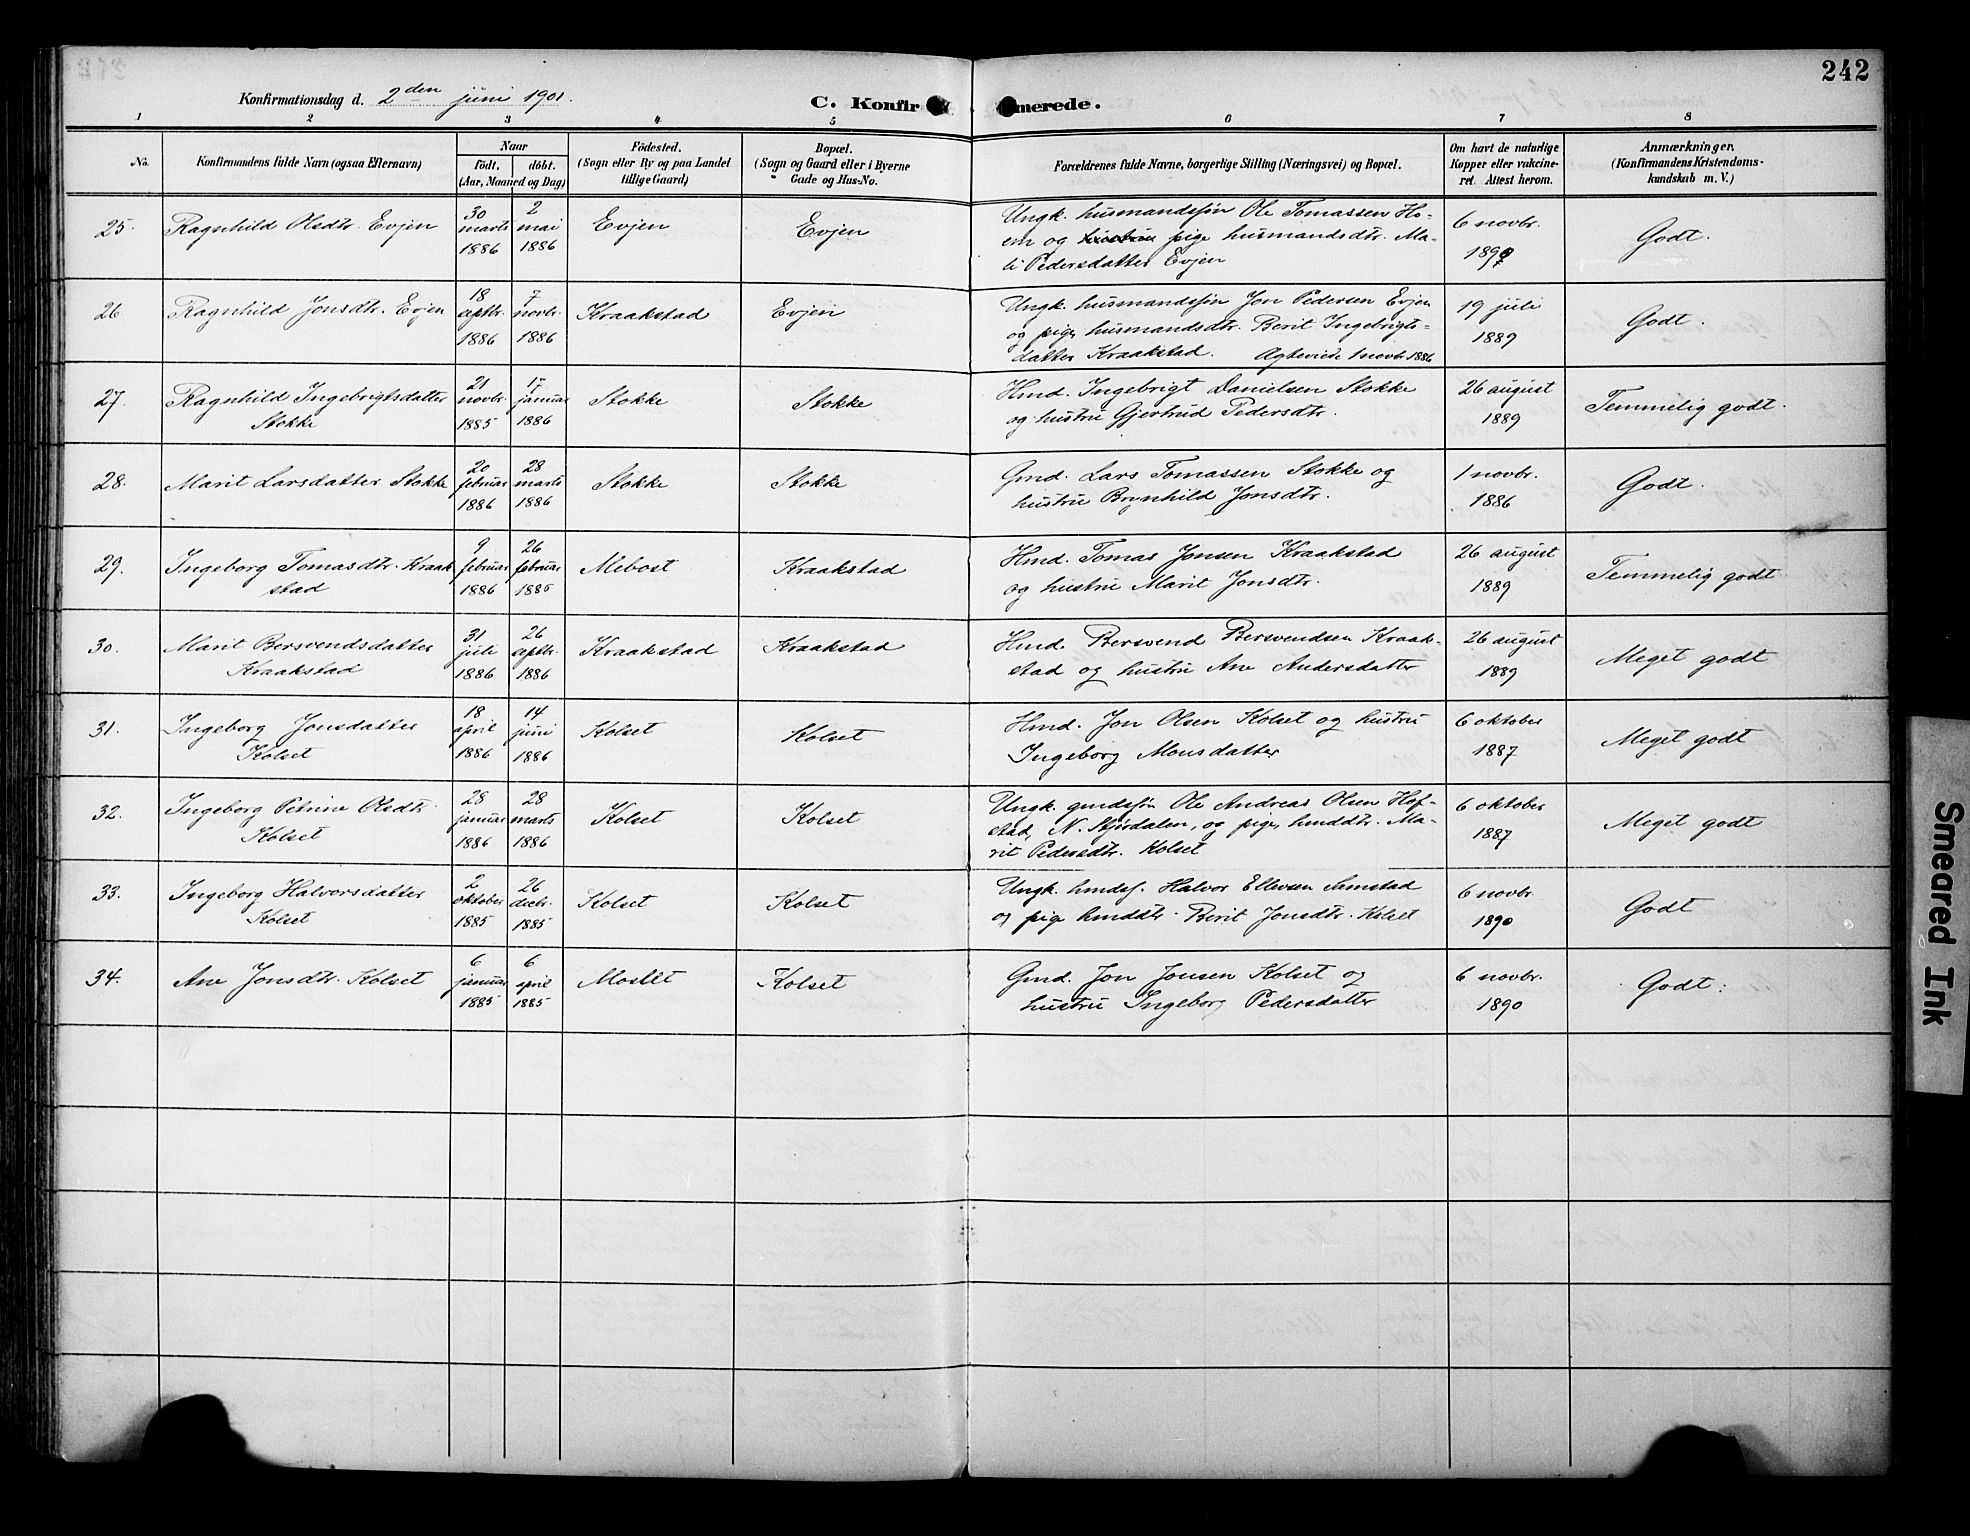 242
Konfirmationsdag d. 2den juni 1901.
C. Konfir merede.
1 2 3 4 5 6 7 8
No.
Konfirmandens fulde Navn (ogsaa Efternavn)
Naar
födt. döbt.
(Aar, Maaned og Dag)
Födested.
(Sogn eller By og paa Landet
tillige Gaard)
Bopæl.
(Sogn og Gaard eller i Byerne
Gade og Hus-No.
Forældrenes fulde Navne, borgerlige Stilling (Næringsvei) og Bopæl.
Om havt de naturlige
Kopper eller vakcine-
ret. Attest herom.
Anmærkninger.
(Konfirmandens Kristendoms-
kundskab m. V.)
25. Ragnhild Olsdtr. Evjen
30 marts 1886
2 mai 1886
Evjen
Evjen
Ungk. husmandssøn Ole Tomassen Ho-
em og hustru pige husmandsdtr. Ma-
li Pedersdatter Evjen
6 novbr.
1890
Godt.
26. Ragnhild Jonsdtr. Evjen
18 septbr. 1886
7 novbr. 1886
Kraakstad
Evjen
Ungk. husmandssøn Jon Pedersen Evjen
og pige husmandsdtr. Berit Ingebrigts-
datter Kraakstad. Ægteviede 1 novbr. 1886
19 juli
1889
Godt.
27. Ragnhild Ingebrigtsdatter
Stokke
21 novbr. 1885
17 januar 1886
Stokke
Stokke
Hmd. Ingebrigt Danielsen Stokke
og hustru Gjertrud Pedersdtr.
26 august
1889
Temmelig godt.
28. Marit Larsdatter Stokke
20 februar 1886
28 marts 1886
Stokke
Stokke
Gmd. Lars Tomassen Stokke og
hustru Brynhild Jonsdtr.
1 novbr.
1886
Godt.
29. Ingeborg Tomasdtr. Kraak
stad
9 februar 1886
26 februar 1885
Mebost
Kraakstad
Hmd. Tomas Jonsen Kraakstad
og hustru Marit Jonsdtr.
26 august
1889
Temmelig godt
30. Marit Bersvendsdatter
Kraakstad
31 juli 1886
26 septbr. 1886
Kraakstad
Kraakstad
Hmd. Bersvend Bersvendsen Kraak-
stad og hustru Ane Andersdatter
26 august
1889
Meget godt
31. Ingeborg Jonsdatter
Kolset
18 april 1886
14 juni 1886
Kolset
Kolset
Hmd. Jon Olsen Kolset og hustru
Ingeborg Monsdatter
6 oktober
1887
Meget godt
32. Ingeborg Petrine Olsdtr.
Kolset
28 januar 1886
28 marts 1886
Kolset
Kolset
Ungk. gmdssøn Ole Andreas Olsen Hof-
stad, N. Stjørdalen, og pige, hmddtr. Ma-
rit Pedersdtr. Kolset
6 oktober
1887
Meget godt
33. Ingeborg Halvorsdatter
Kolset
2 oktober 1885
26 decbr. 1885
Kolset
Kolset
Ungk. hmds. Halvor Ellevsen
og pige hmddtr. Berit Jonsdtr. Kolset
6 novbr.
1890
Godt
34. Ane Jonsdtr. Kolset
6 januar 1885
6 april 1885
Moslet
Kolset
Gmd. Jon Jonsen Kolset og
hustru Ingeborg Pedersdatter
6 novbr.
1890
Godt.
Smeared Ink